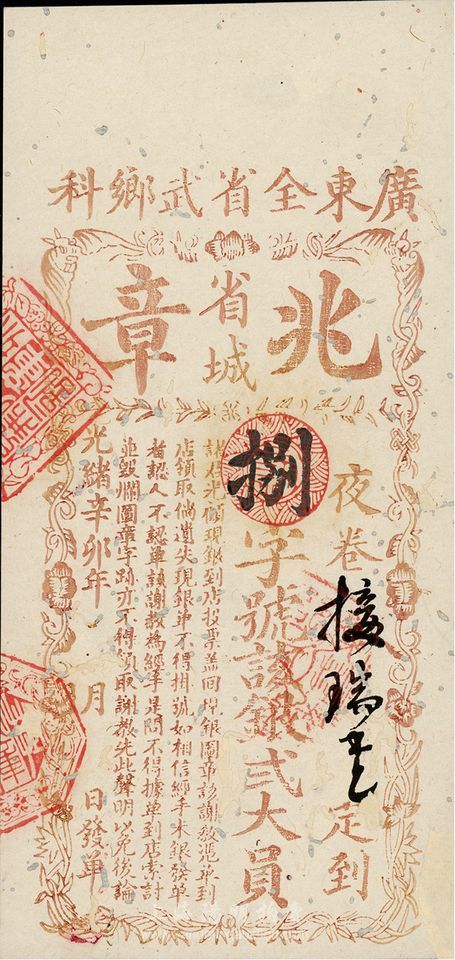 廣東全省武鄉科
兆章
省城
夜卷接瑞定到
捌字號該銀弍大員
現銀到店投票蓋回現銀圖章該謝教憑單到
店領取倘遺失現銀單不得掛號如相信經手未銀發單
者認人不認單該謝教為經手是問不得據單到店索計
並毀爛圖章字跡亦不得領取謝教先此聲明以免後論
光緒辛卯年 月 日發單